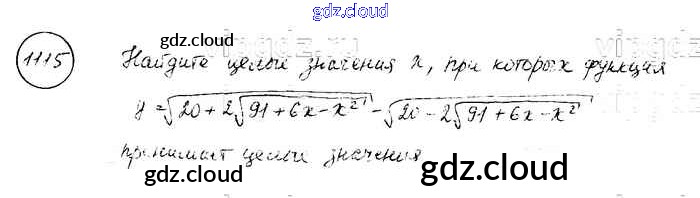 gdz.cloud
1115
gdz.cloud
Найдите целые значения x, при которых функция
y = √(20 + 2√(91 + 6x − x²)) − √(20 − 2√(91 + 6x − x²))
принимает целые значения
gdz.cloud
gdz.cloud
gdz.cloud